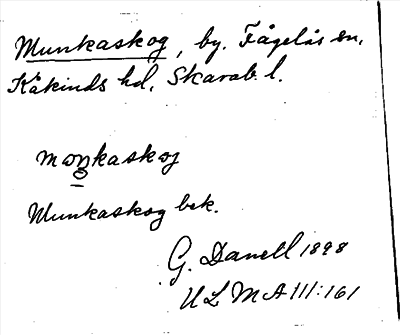 Munkaskog, by. Fågelås sn,
Kåkinds hd, Skarab. l.
moŋkaskoj
Munkaskog bek.
G. Danell 1898
ULMA 111:161